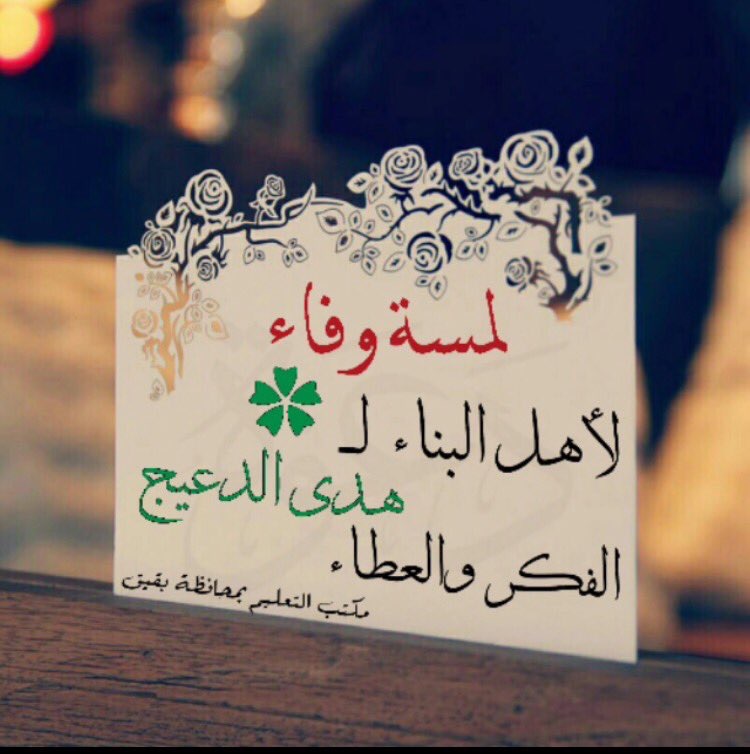 لمسة وفاء
لأهل البناء لـ
هدى الدعيج
الفكر والعطاء
مكتب التعليم بمحافظة بقيق